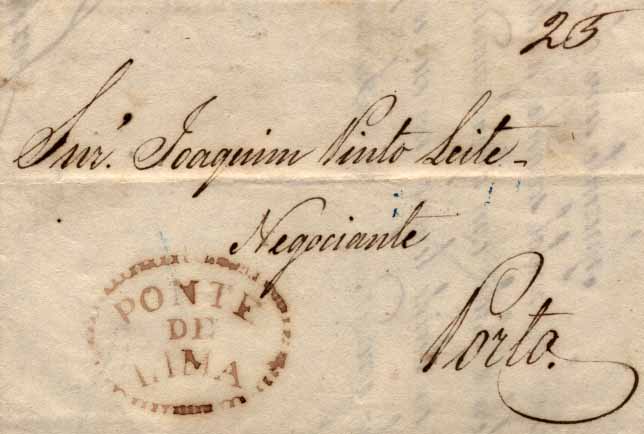 25
Snr. Joaquim Pinto Leite
Negociante
Porto.
PONTE
DE
LIMA